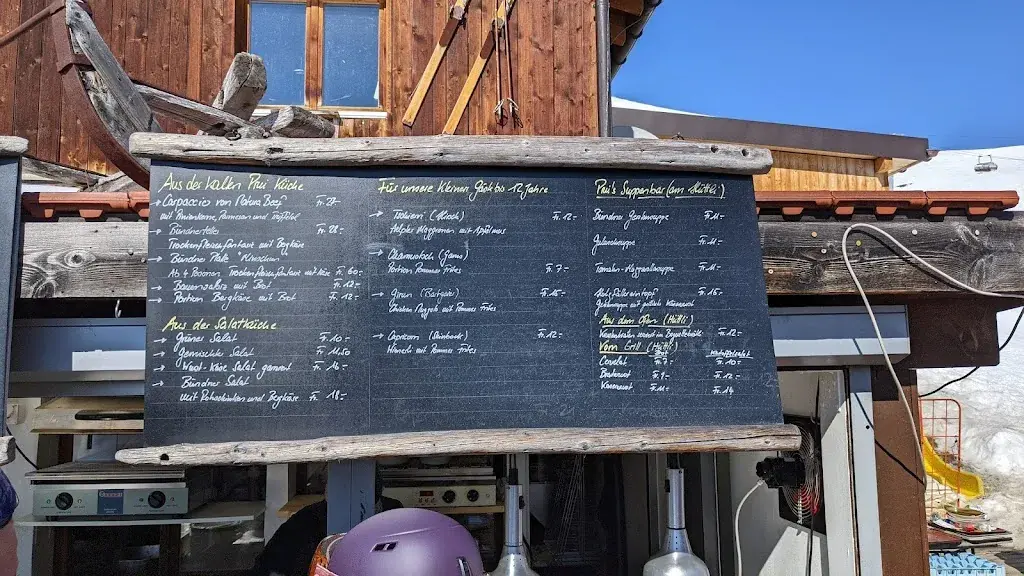 Aus der kalten Prui Küche
Carpaccio von Natura Beef Fr. 27.-
mit Parmesan und
Bündnerteller Fr. 28.-
Trockenfleischfantasie mit Bergkäse
Bündner Plate
Ab 4 Personen Trockenfleischfantasie mit Käse Fr. 60.-
Bauernsalsiz mit Brot Fr. 12.-
Portion Bergkäse mit Brot Fr. 12.-
Aus der Salatküche
Grüner Salat Fr. 10.-
Gemischter Salat Fr. 11.50
Wurst-Käse Salat garniert Fr. 16.-
Bündner Salat
mit Rohschinken und Bergkäse Fr. 18.-
Für unsere kleinen Gäste bis 12 Jahre
Tschiern (Hirsch) Fr. 12.-
Älpler Maggronen mit Apfelmus
Chamuotsch (Gams)
Portion Pommes frites Fr. 7.-
Girun (Bartgeier) Fr. 15.-
Chicken Nuggets mit Pommes frites
Capricorn (Steinbock) Fr. 12.-
Wienerli mit Pommes frites
Prui's Suppenbar (am Hüttli)
Bündner Gerstensuppe Fr. 11.-
Gulaschsuppe Fr. 11.-
Tomaten- Fr. 11.-
Fr. 15.-
Aus dem Ofen (Hüttli)
Fr. 12.-
Vom Grill (Hüttli)
Brot Kartoffelsalat
Cervelat Fr. 7.- Fr. 10.-
Bratwurst Fr. 9.- Fr. 12.-
Fr. 11.- Fr. 14